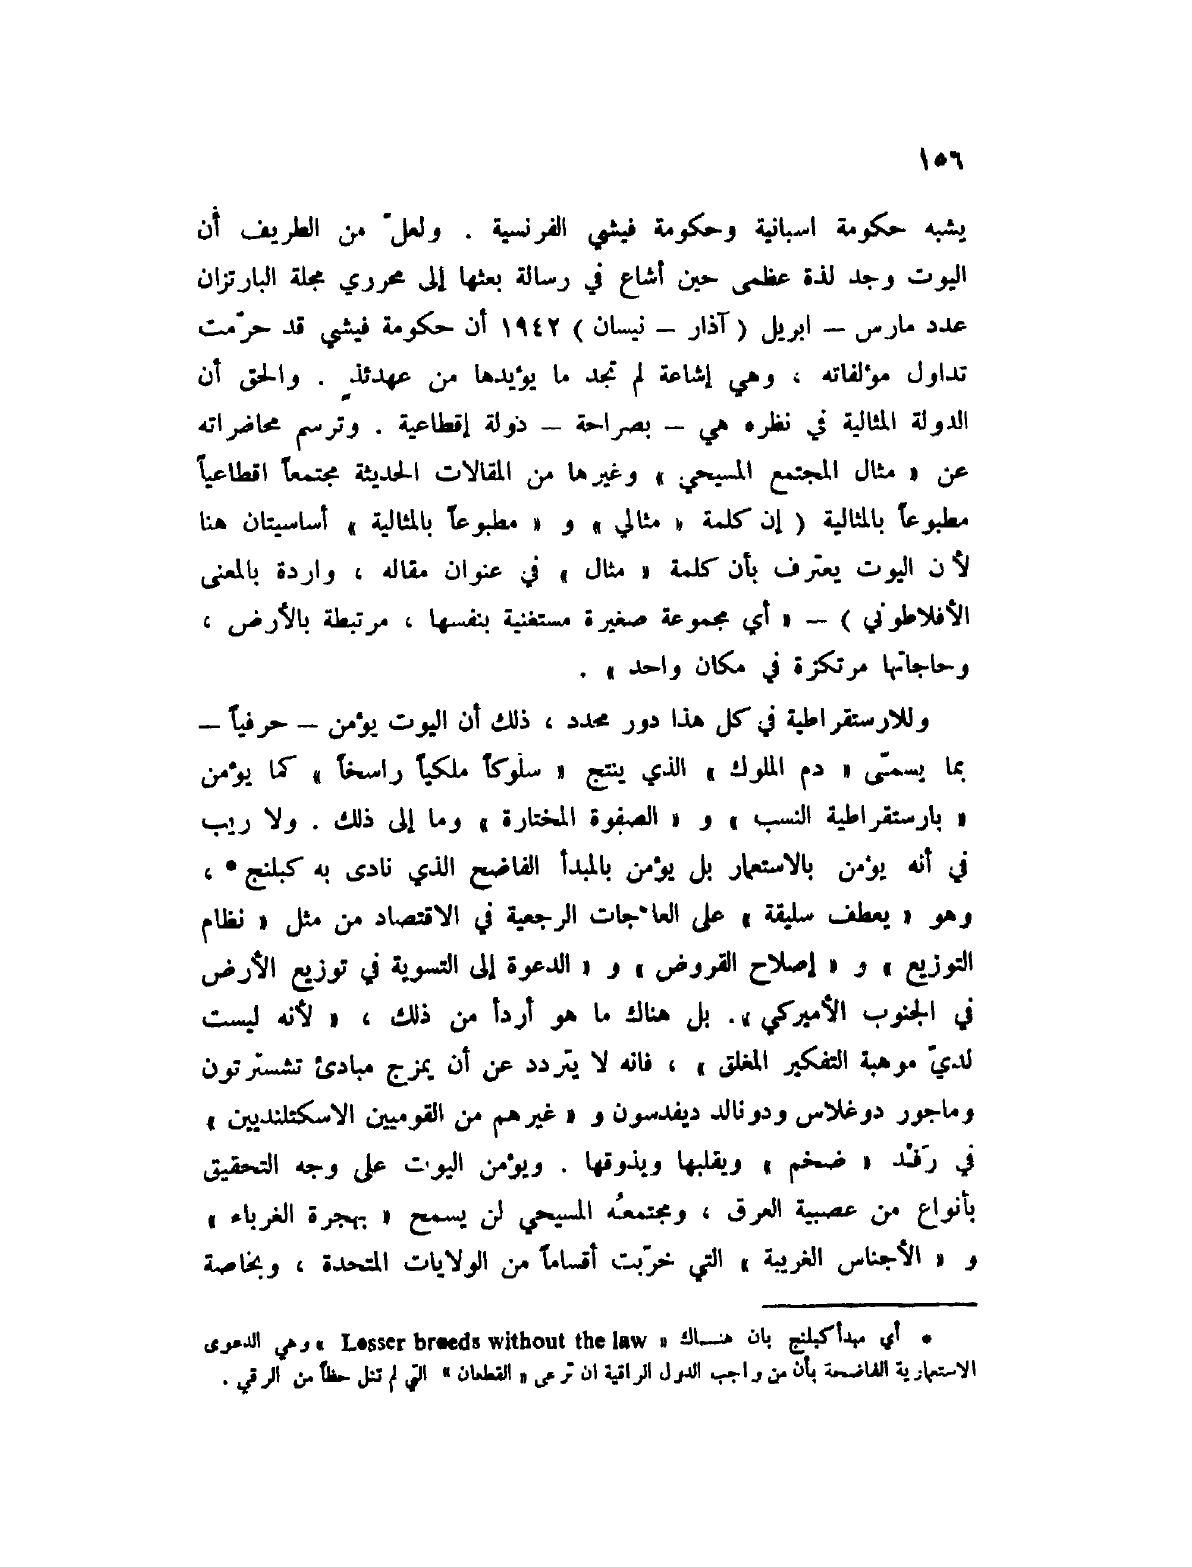 ١٥٦
يشبه حكومة اسبانية وحكومة فيشي الفرنسية . ولعلّ من الطريف أن
اليوت وجد لذة عظمى حين أشاع في رسالة بعثها إلى محرري مجلة البارتزان
عدد مارس – ابريل ( آذار – نيسان ) ١٩٤٢ أن حكومة فيشي قد حرّمت
تداول مؤلفاته ، وهي إشاعة لم تجد ما يؤيدها من عهدئذٍ . والحق أن
الدولة المثالية في نظره هي – بصراحة – دولة إقطاعية . وترسم محاضراته
عن « مثال المجتمع المسيحي » وغيرها من المقالات الحديثة مجتمعاً اقطاعياً
مطبوعاً بالمثالية ( إن كلمة « مثالي » و « مطبوعاً بالمثالية » أساسيتان هنا
لأن اليوت يعترف بأن كلمة « مثال » في عنوان مقاله ، واردة بالمعنى
الأفلاطوني ) – « أي مجموعة صغيرة مستغنية بنفسها ، مرتبطة بالأرض ،
وحاجاتها مرتكزة في مكان واحد » .
وللارستقراطية في كل هذا دور محدد ، ذلك أن اليوت يؤمن – حرفياً –
بما يسمّى « دم الملوك » الذي ينتج « سلوكاً ملكياً راسخاً » كما يؤمن
« بارستقراطية النسب » و « الصفوة المختارة » وما إلى ذلك . ولا ريب
في أنه يؤمن بالاستعمار بل يؤمن بالمبدأ الفاضح الذي نادى به كبلنج * ،
وهو « يعطف سليقة » على العلاجات الرجعية في الاقتصاد من مثل « نظام
التوزيع » و « إصلاح القروض » و « الدعوة إلى التسوية في توزيع الأرض
في الجنوب الأميركي » . بل هناك ما هو أردأ من ذلك ، « لأنه ليست
لديّ موهبة التفكير المغلق » ، فانه لا يتردد عن أن يمزج مبادئ تشسترتون
وماجور دوغلاس ودونالد ديفدسون و « غيرهم من القوميين الاسكتلنديين »
في رَفْد « ضخم » ويقلبها ويذوقها . ويؤمن اليوت على وجه التحقيق
بأنواع من عصبية العرق ، ومجتمعُه المسيحي لن يسمح « بهجرة الغرباء »
و « الأجناس الغريبة » التي خرّبت أقساماً من الولايات المتحدة ، وبخاصة
* أي مبدأ كبلنج بان هنـــاك « Lesser breeds without the law » وهي الدعوى
الاستعمارية الفاضحة بأن من واجب الدول الراقية ان ترعى « القطعان » التي لم تنل حظاً من الرقي .